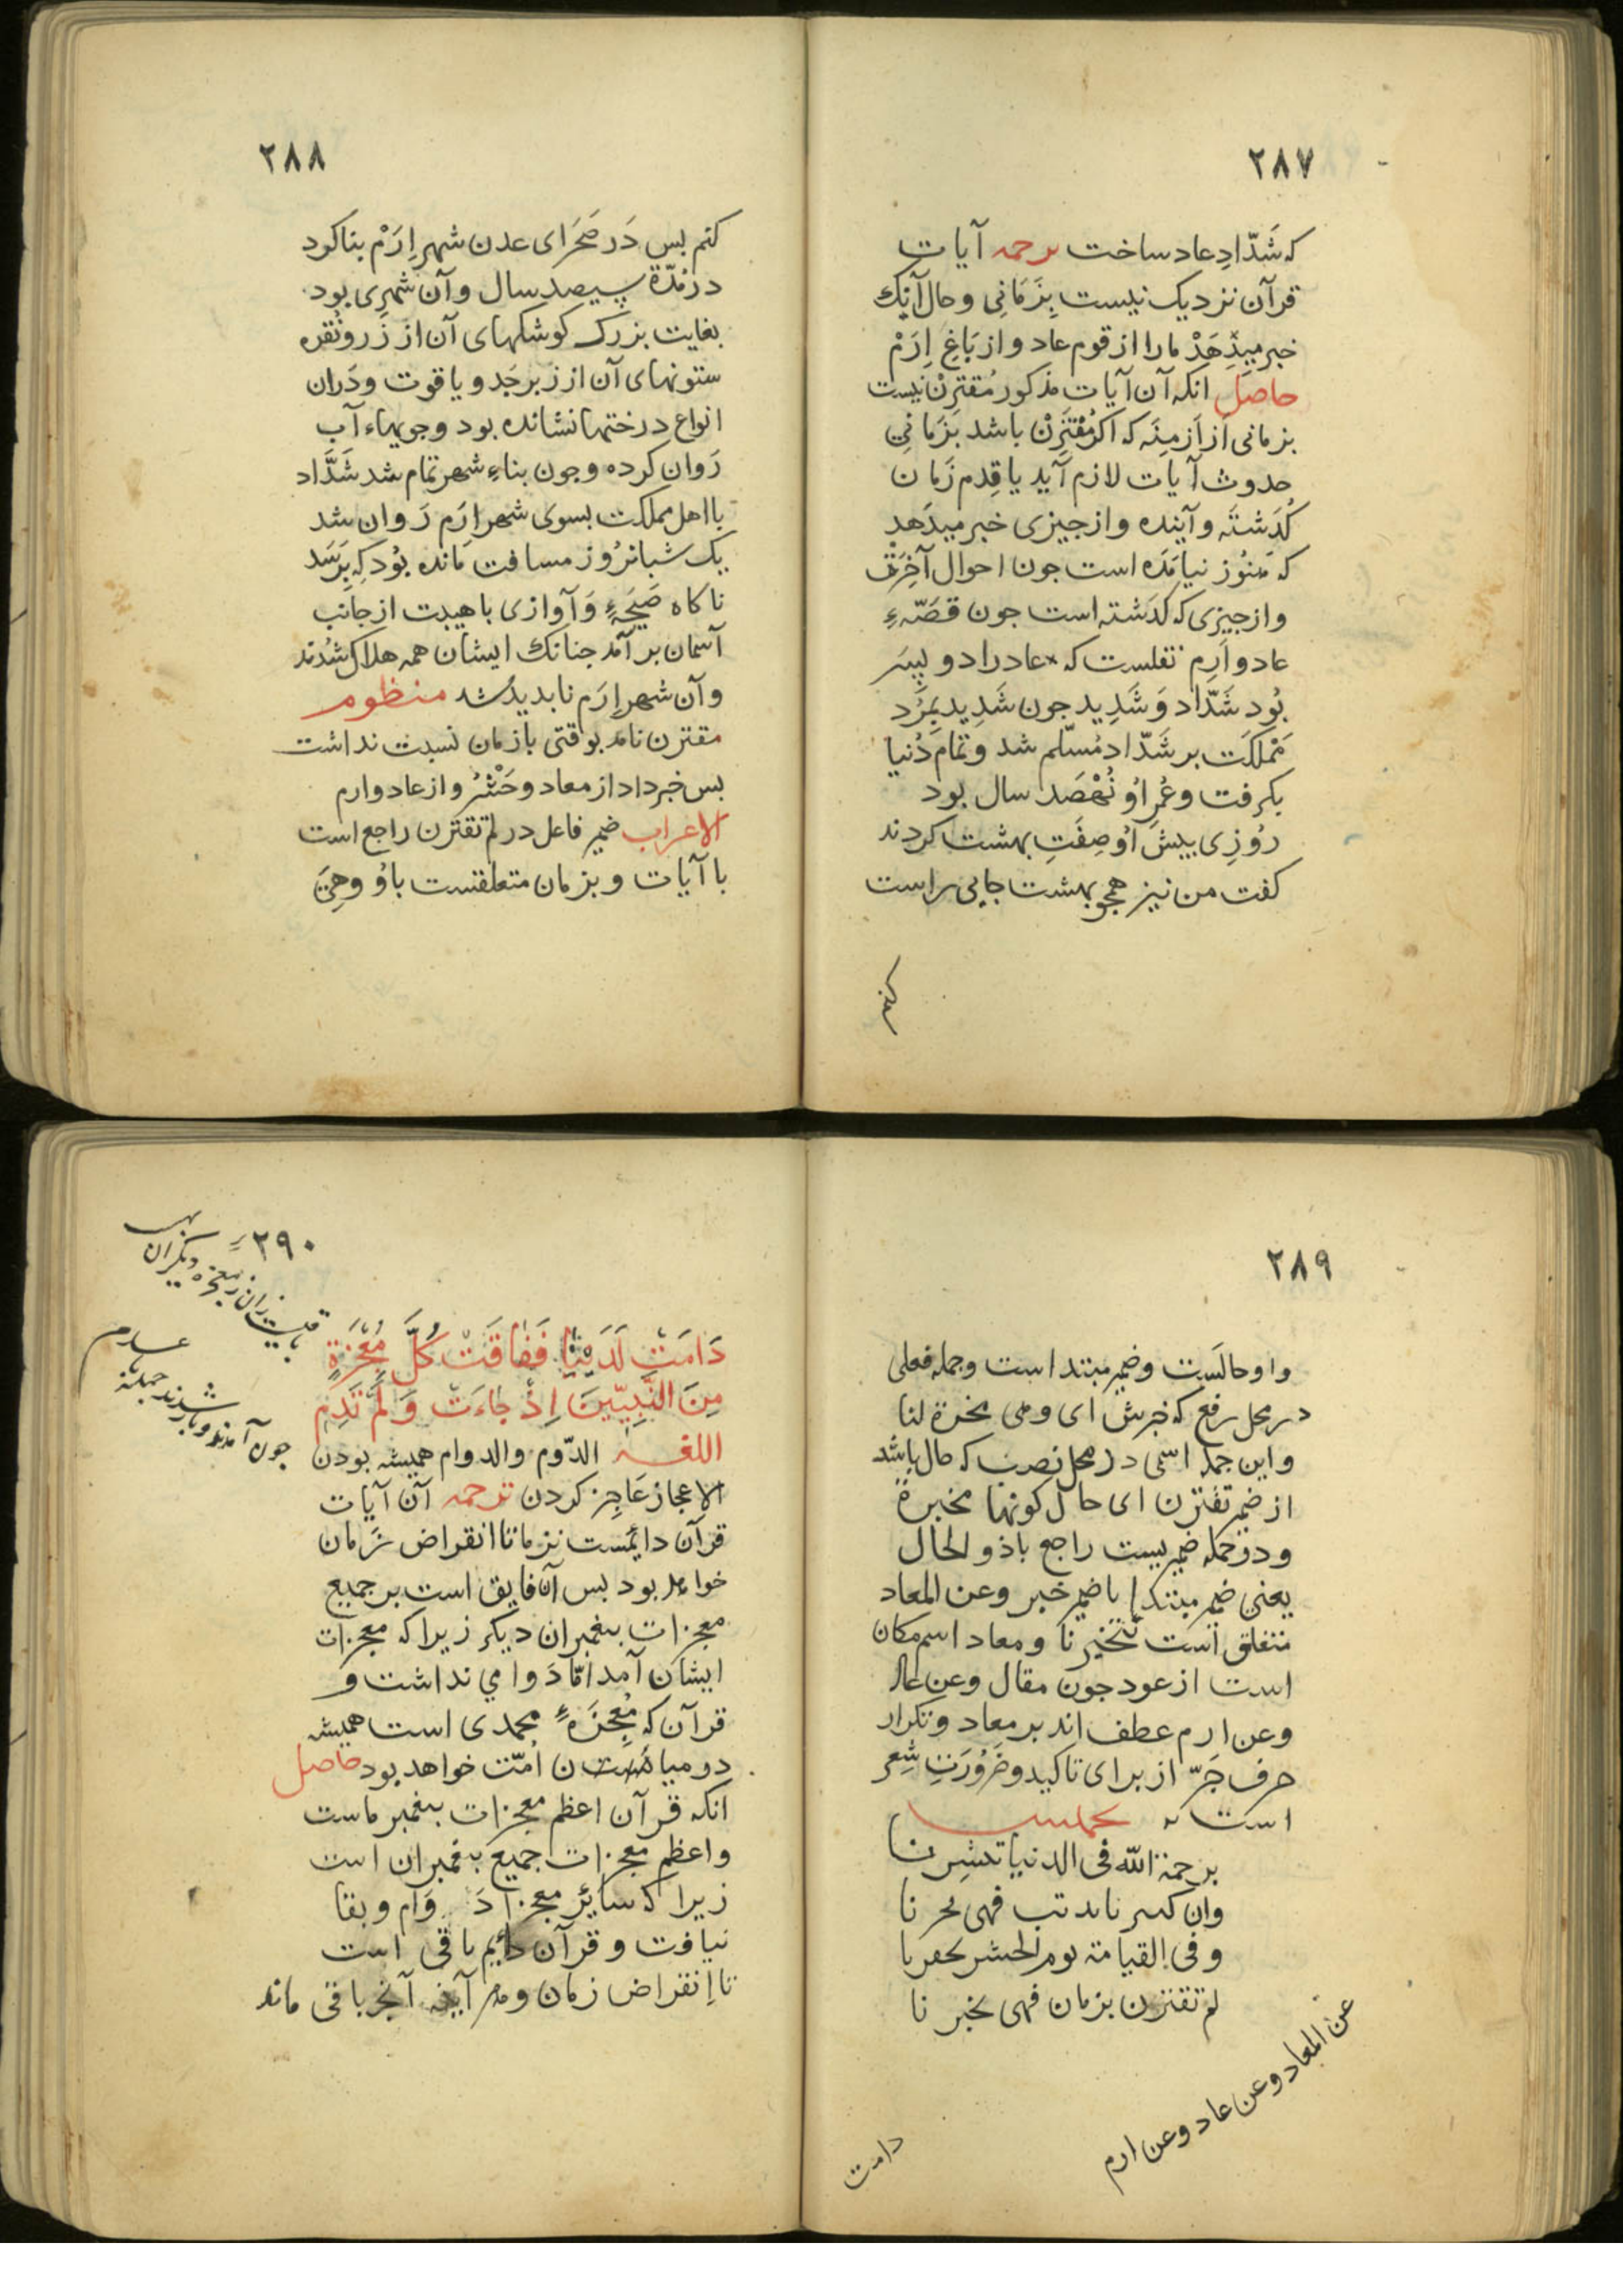 ٢٨٧
كه شَدّادِ عاد ساخت ترجمه آيات
قرآن نزديك نيست بِزَمَانِى و حال آنك
خبر ميدِهَدْ مارا از قوم عاد و از بَاغِ اِرَمْ
حاصل انكه آن آيات مذكور مُقتَرِنْ نيست
بزمانى از اَزمِنَه كه اكر مُقْتَرِنْ باشد بَزَمَانِى
حدوث آيات لازم آيد يا قِدم زَمان
كُذَشتَه و آينده و از جيزى خبر ميدَهدْ
كه هَنُوز نيامَده است جون احوال آخِرَت
و از جيزِى كه كذَشته است جون قصّهء
عاد و اَرِم نقلست كه عاد را دو پِسَر
بُود شَدّاد وَ شَدِيد جون شَدِيد بِمُرد
مَملكَت بر شَدّاد مُسلّم شد و تمام دُنيا
بكرفت و عُمرِ اُو نُهصَد سال بود
رُوزِى پيشِ اُو صِفَتِ بهشت كردند
كفت من نيز همجو بهشت جايى راست
كنم
٢٨٨
كنم بس دَر صَحرَاى عدن شهر اِرَمْ بنا كرد
در مُدّة سيصد سال و آن شهرِى بود
بغايت بزرك كوشكهاى آن از زَر و نُقره
ستونهاى آن از زبرجَد و ياقوت و دَران
انواع درختها نشانده بود و جويهاء آب
رَوان كرده و جون بناءِ شهر تمام شد شَدَّاد
با اهل مملكت بسوى شهر ارَم رَوان شد
يك شبانرُوز مسافت مَانده بُود كه بِرَسَد
ناكاه صَيحَهءِ وَ آوازى با هيبت از جانب
آسمان بر آمَد جنانك ايشان همه هلاك شُدند
و آن شهر اِرَم نابديد شد منظوم
مقترن نامد بوقتى با زمان نسبت نداشت
بس خبر داد از معاد و حَشْرُ و از عاد و ارم
الاعراب ضمير فاعل در لم تقترن راجع است
با آيات و بزمان متعلقست باُو وهِىَ
٢٨٩
واو حالَست و ضمير مبتدا است و جمله فعلى
در محل رفع كه خبرش اى و هى مخبرة لنا
و اين جمله اسمى در محل نصب كه حال باشد
از ضمير تقترن اى حال كونها مخبرة
و دو جمله ضميريست راجع باذو الحال
يعنى ضمير مبتدا با ضمير خبر و عن المعاد
متعلق است بتخبرنا و معاد اسم مكان
است از عود جون مقال و عن عاد
و عن ارم عطف اند بر معاد و تكرار
حرف جَرّ از براى تاكيد و ضَرُورَتِ شِعر
است
برحمة الله فى الدنيا تبشرنا
فهى تحرنا
و فى القيامة يوم الحشر
لم تقترن بزمان فهى تخبرنا
عن المعاد و عن عاد و عن ارم
دامت
٢٩٠
باقيست زان معجزه ديكران
جون آمدند و باز شدند جمله
دَامَتْ لَدَيْنَا فَفَاقَتْ كُلَّ مُعْجِزَةٍ
مِنَ النَّبِيّينَ اِذْ جَاءَتْ وَ لَمْ تَدِمِ
اللغه الدّوم والدوام هميشه بودن
الاعجاز عَاجِز كردن ترجمه آن آيات
قرآن دايمست نزمانا انقراض زَمان
خواهد بود بس آن فايق است بر جميع
معجزات بيغمبران ديكر زيرا كه معجزات
ايشان آمد امّا دَوامي نداشت و
قرآن كه مُعجِزَهءِ محمدى است هميشه
در ميان اُمّت خواهد بود حاصل
انكه قرآن اعظم معجزات بيغمبر ماست
و اعظم معجزات جميع بيغمبران است
زيرا كه سايَر معجزات دَوَام و بقا
نيافت و قرآن دايم باقى است
تا اِنقراض زمان و هر آينه آنجر باقى ماند